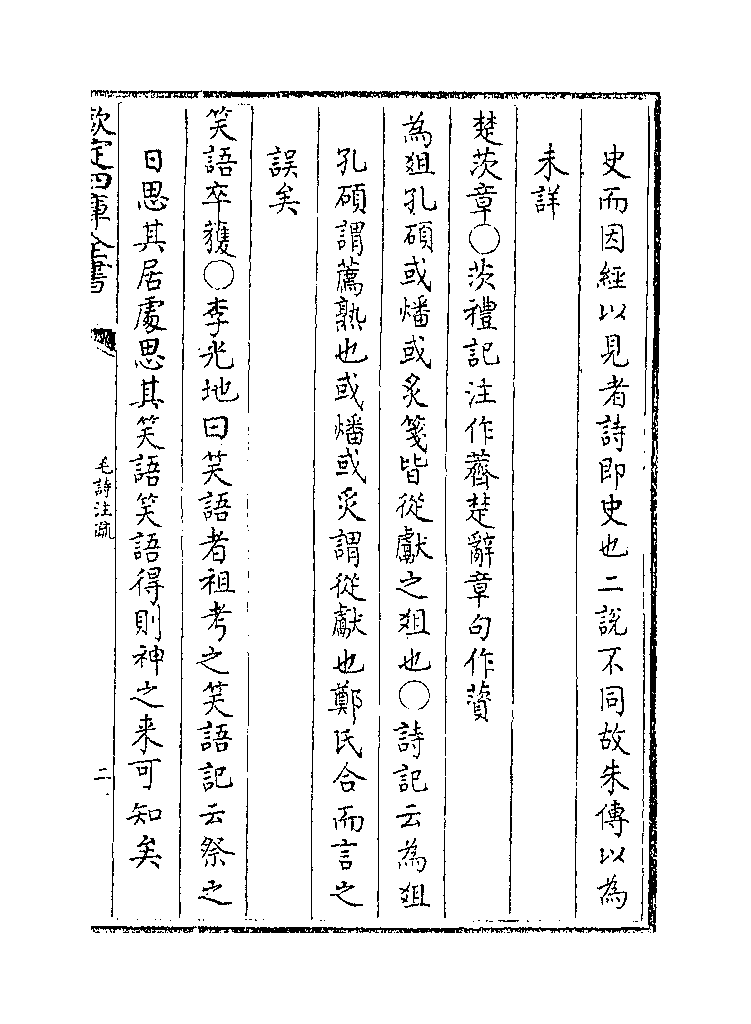 史而因經以見者詩即史也二說不同故朱傳以為
未詳
楚茨章○茨禮記注作薺楚辭章句作薋
為俎孔碩或燔或炙箋皆從獻之俎也○詩記云為俎
孔碩謂薦熟也或燔或炙謂從獻也鄭氏合而言之
誤矣
笑語卒獲○李光地曰笑語者祖考之笑語記云祭之
日思其居處思其笑語笑語得則神之来可知矣
欽定四庫全書
毛詩注疏
二